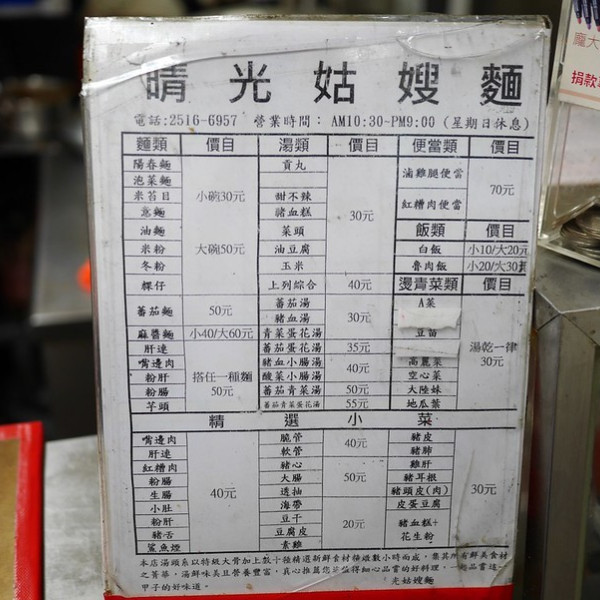 晴光姑嫂麵
電話:2516-6957 營業時間: AM10:30~PM9:00 (星期日休息)
麵類 價目 湯類 價目 便當類 價目
陽春麵
泡菜麵
米苔目
意麵
油麵
米粉
冬粉
粿仔
小碗30元
大碗50元
蕃茄麵 50元
麻醬麵 小40/大60元
肝連
嘴邊肉
粉肝
粉腸
芋頭
搭任一種麵
50元
貢丸
甜不辣
豬血糕
菜頭
油豆腐
玉米
30元
上列綜合 40元
蕃茄湯
豬血湯
青菜蛋花湯
30元
蕃茄蛋花湯 35元
豬血小腸湯
酸菜小腸湯
40元
蕃茄青菜湯 50元
蕃茄青菜蛋花湯 55元
滷雞腿便當
紅糟肉便當
70元
飯類 價目
白飯 小10/大20元
魯肉飯 小20/大30
燙青菜類 價目
A菜
豆苗
高麗菜
空心菜
大陸妹
地瓜葉
湯乾一律
30元
精選小菜
嘴邊肉
肝連
紅糟肉
粉腸
生腸
小肚
粉肝
豬舌
鯊魚煙
40元
脆管
軟管
40元
豬心
大腸
透抽
50元
海帶
豆干
豆腐皮
素雞
20元
豬皮
豬肺
雞肝
豬耳根
豬頭皮(肉)
皮蛋豆腐
豬血糕+
花生粉
30元
本店湯頭系以特級大骨加上數十種精選新鮮食材熬燉數小時而成,集其所有鮮美食材
之菁華,湯鮮味美且營養豐富,真心推薦您
甲子的好味道。 光姑嫂麵
捐款